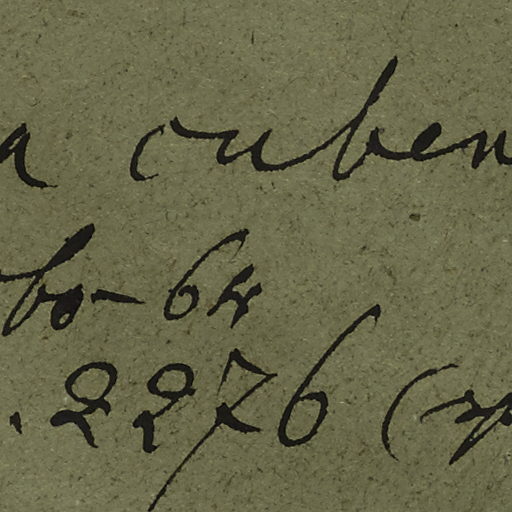 a cuben
bo-64
. 2276 (sp